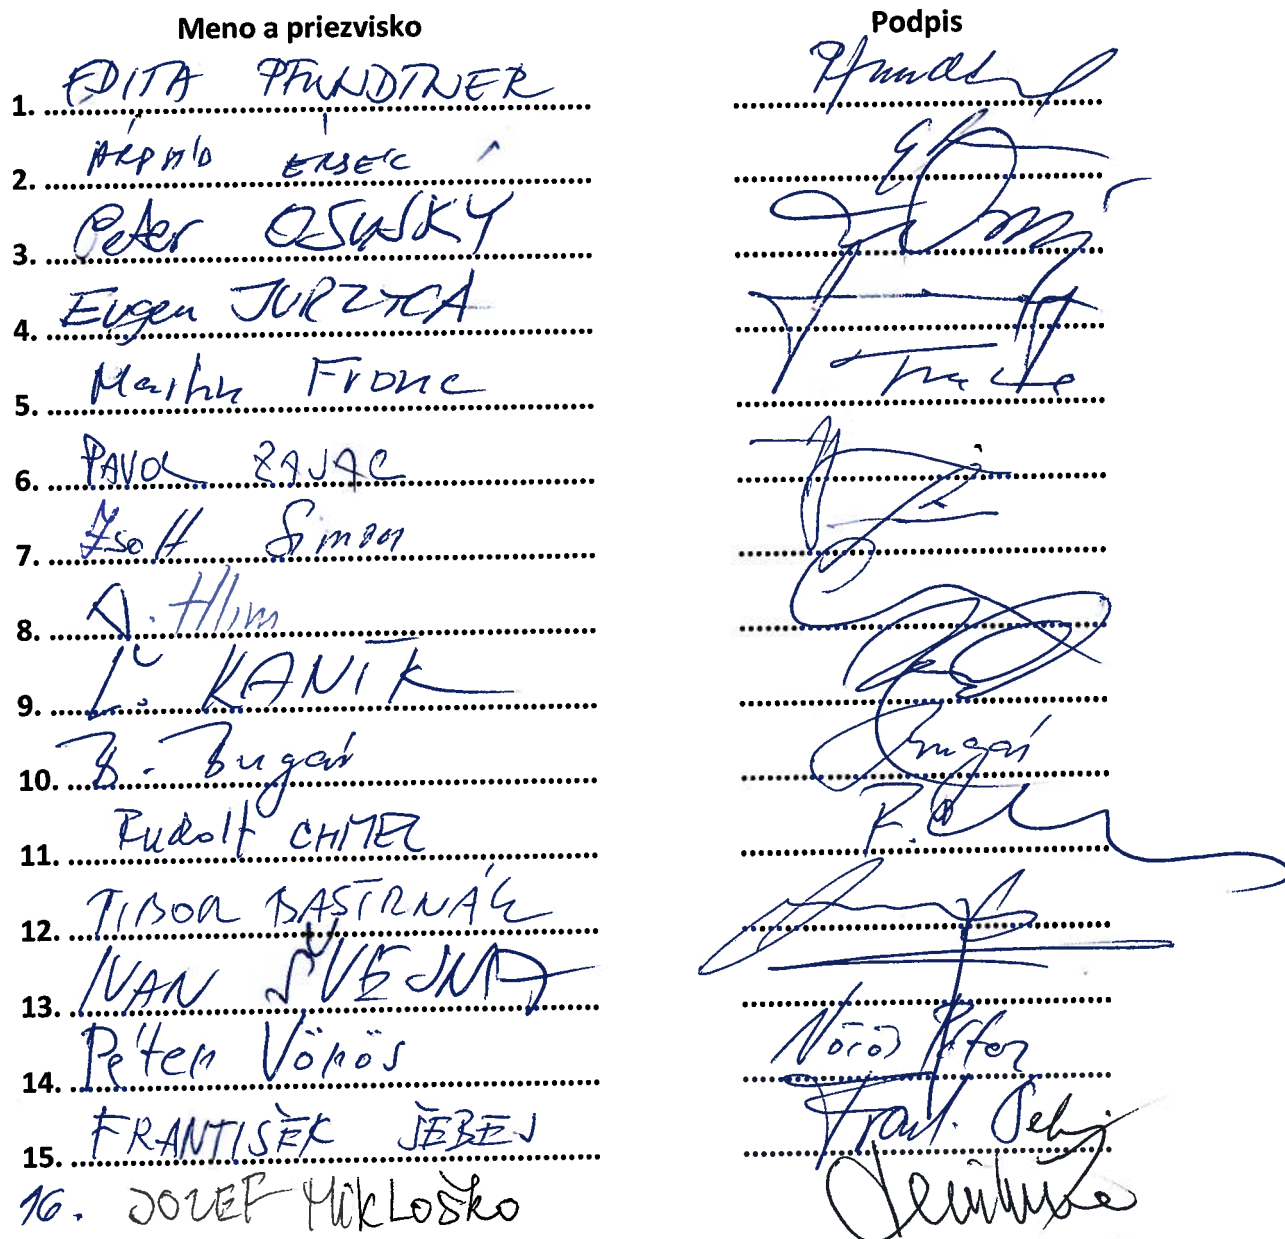 Meno a priezvisko Podpis
1. EDITA PFUNDTNER
2. ÁRPÁD ÉRSEK
3. Peter OSUSKÝ
4. Eugen JURZYCA
5. Martin Fronc
6. PAVOL ZAJAC
7. Zsolt Simon
8. A. Hlina
9. Ľ. KANÍK
10. B. Bugár Bugár
11. Rudolf CHMEL
12. TIBOR BASTRNÁK
13. IVAN ŠVEJNA
14. Péter Vörös Vörös Péter
15. FRANTIŠEK ŠEBEJ Frant. Šebej
16. JOZEF MIKLOŠKO